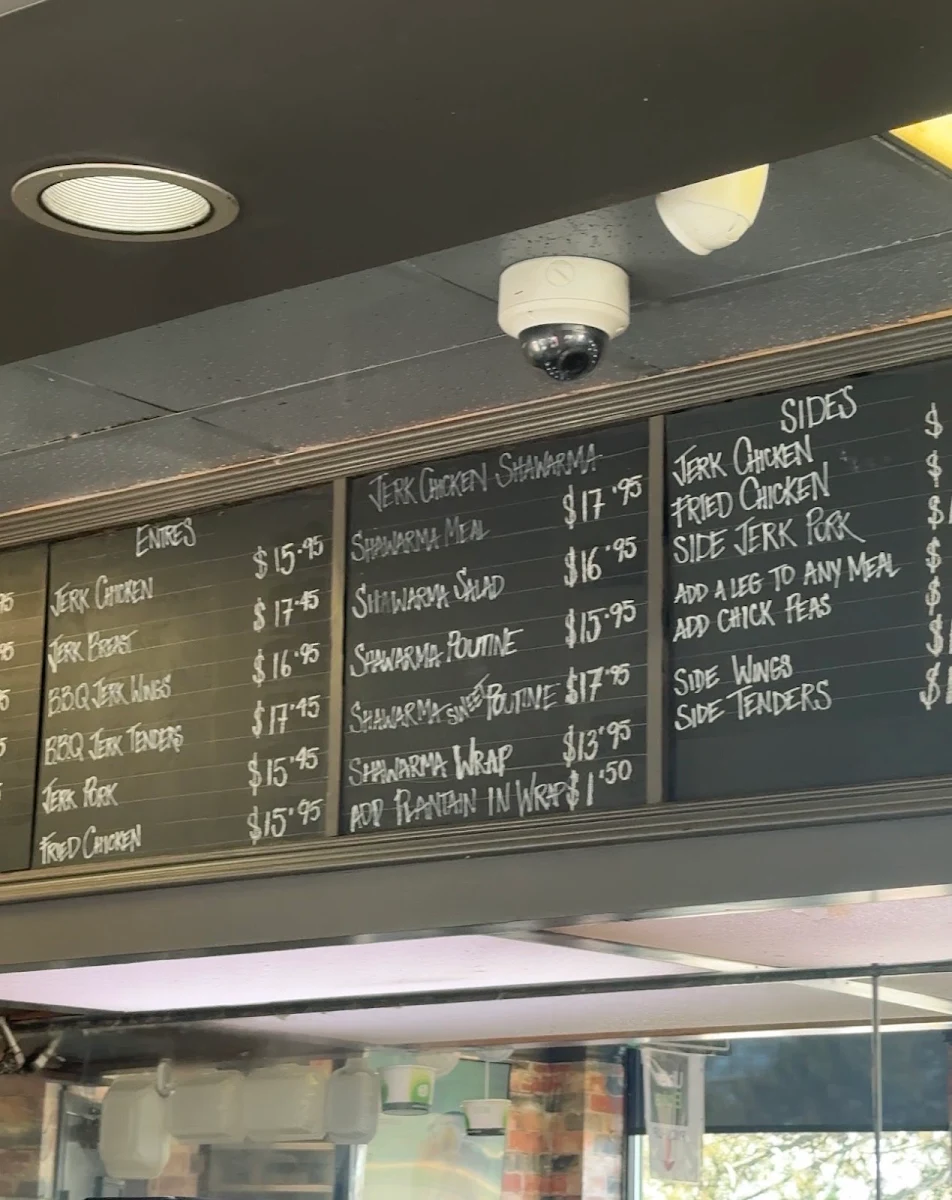 ENTRES
JERK CHICKEN $15.95
JERK BREAST $17.45
BBQ JERK WINGS $16.95
BBQ JERK TENDERS $17.45
JERK PORK $15.45
FRIED CHICKEN $15.95
JERK CHICKEN SHAWARMA
SHAWARMA MEAL $17.95
SHAWARMA SALAD $16.95
SHAWARMA POUTINE $15.95
SHAWARMA SWEET POUTINE $17.95
SHAWARMA WRAP $13.95
ADD PLANTAIN IN WRAP $1.50
SIDES
JERK CHICKEN $
FRIED CHICKEN $
SIDE JERK PORK $
ADD A LEG TO ANY MEAL $
ADD CHICK PEAS $
SIDE WINGS $
SIDE TENDERS $